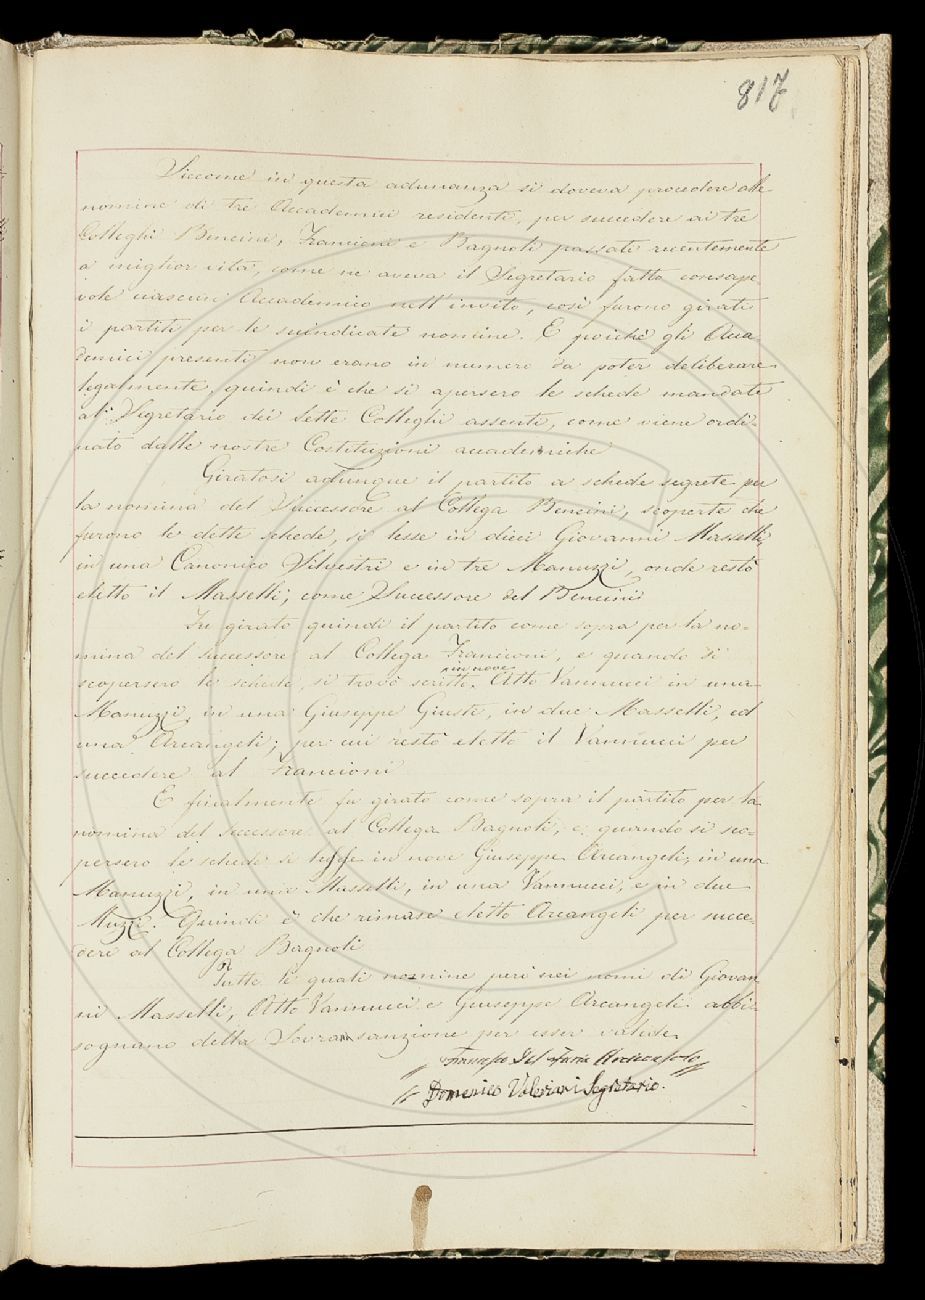 817
Siccome in questa adunanza si doveva procedere alle
nomine di tre Accademici residenti, per succedere ai tre
Colleghi Bencini, Francioni e Bagnoli passati recentemente
a miglior vita, come ne aveva il Segretario fatto consape-
vole ciascun Accademico nell'invito, così furono girati
i partiti per le suindicate nomine. E poichè gli Acca-
demici presenti non erano in numero da poter deliberare
legalmente, quindi è che si apersero le schede mandate
al Segretario dei Sette Colleghi assenti, come viene ordi-
nato dalle nostre Costituzioni accademiche
Giratosi adunque il partito a schede segrete per
la nomina del Successore al Collega Bencini, scoperte che
furono le dette schede, si lesse in dieci Giovanni Masselli,
in una Canonico Silvestri e in tre Manuzzi, onde restò
eletto il Masselli, come Successore del Bencini
Fu girato quindi il partito come sopra per la no-
mina del successore al Collega Francioni, e quando si
scopersero le schede, si trovò scritto in nove Atto Vannucci in una
Manuzzi, in una Giuseppe Giusti, in due Masselli, ed
una Arcangeli; per cui restò eletto il Vannucci per
succedere al Francioni
E finalmente fu girato come sopra il partito per la
nomina del successore al Collega Bagnoli, e quando si sco-
persero le schede si lesse in nove Giuseppe Arcangeli, in una
Manuzzi, in una Masselli, in una Vannucci, e in due
Muzzi. Quindi è che rimase eletto Arcangeli per succe-
dere al Collega Bagnoli
Tutte le quali nomine però nei nomi di Giovan
ni Masselli, Atto Vannucci e Giuseppe Arcangeli abbi-
sognano della Sovrana sanzione per esser valide.
Francesco Del Furia Arciconsolo
Domenico Valeriani Segretario.